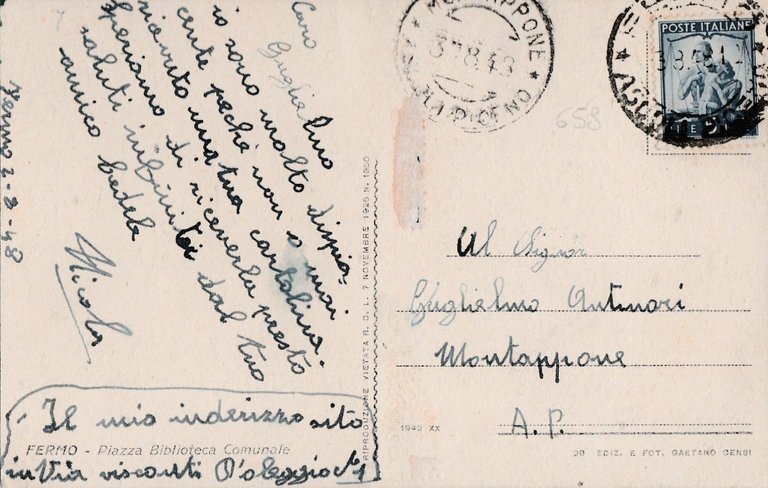 Fermo 2-8-48
Caro
Guglielmo
io sono molto dispia-
cente perché non o mai
ricevuto una tua cartolina.
Speriamo di riceverla presto
saluti infiniti dal tuo
amico Fedele
Nicola
Il mio inderizzo sito
FERMO - Piazza Biblioteca Comunale
in Via visconti D'oleggio N 1
RIPRODUZIONE VIETATA R. D. L. 7 NOVEMBRE 1925 N. 1950
MONTAPPONE
3 8.48
POSTE ITALIANE
658
Al Signor
Guglielmo Antinori
Montappone
A. P.
1942 XX
29 EDIZ. E FOT. GAETANO CENSI